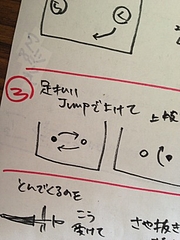 ち く
③ 足払い
Jumpでよけて
とんでくるのを
こう
受けて
さや抜き